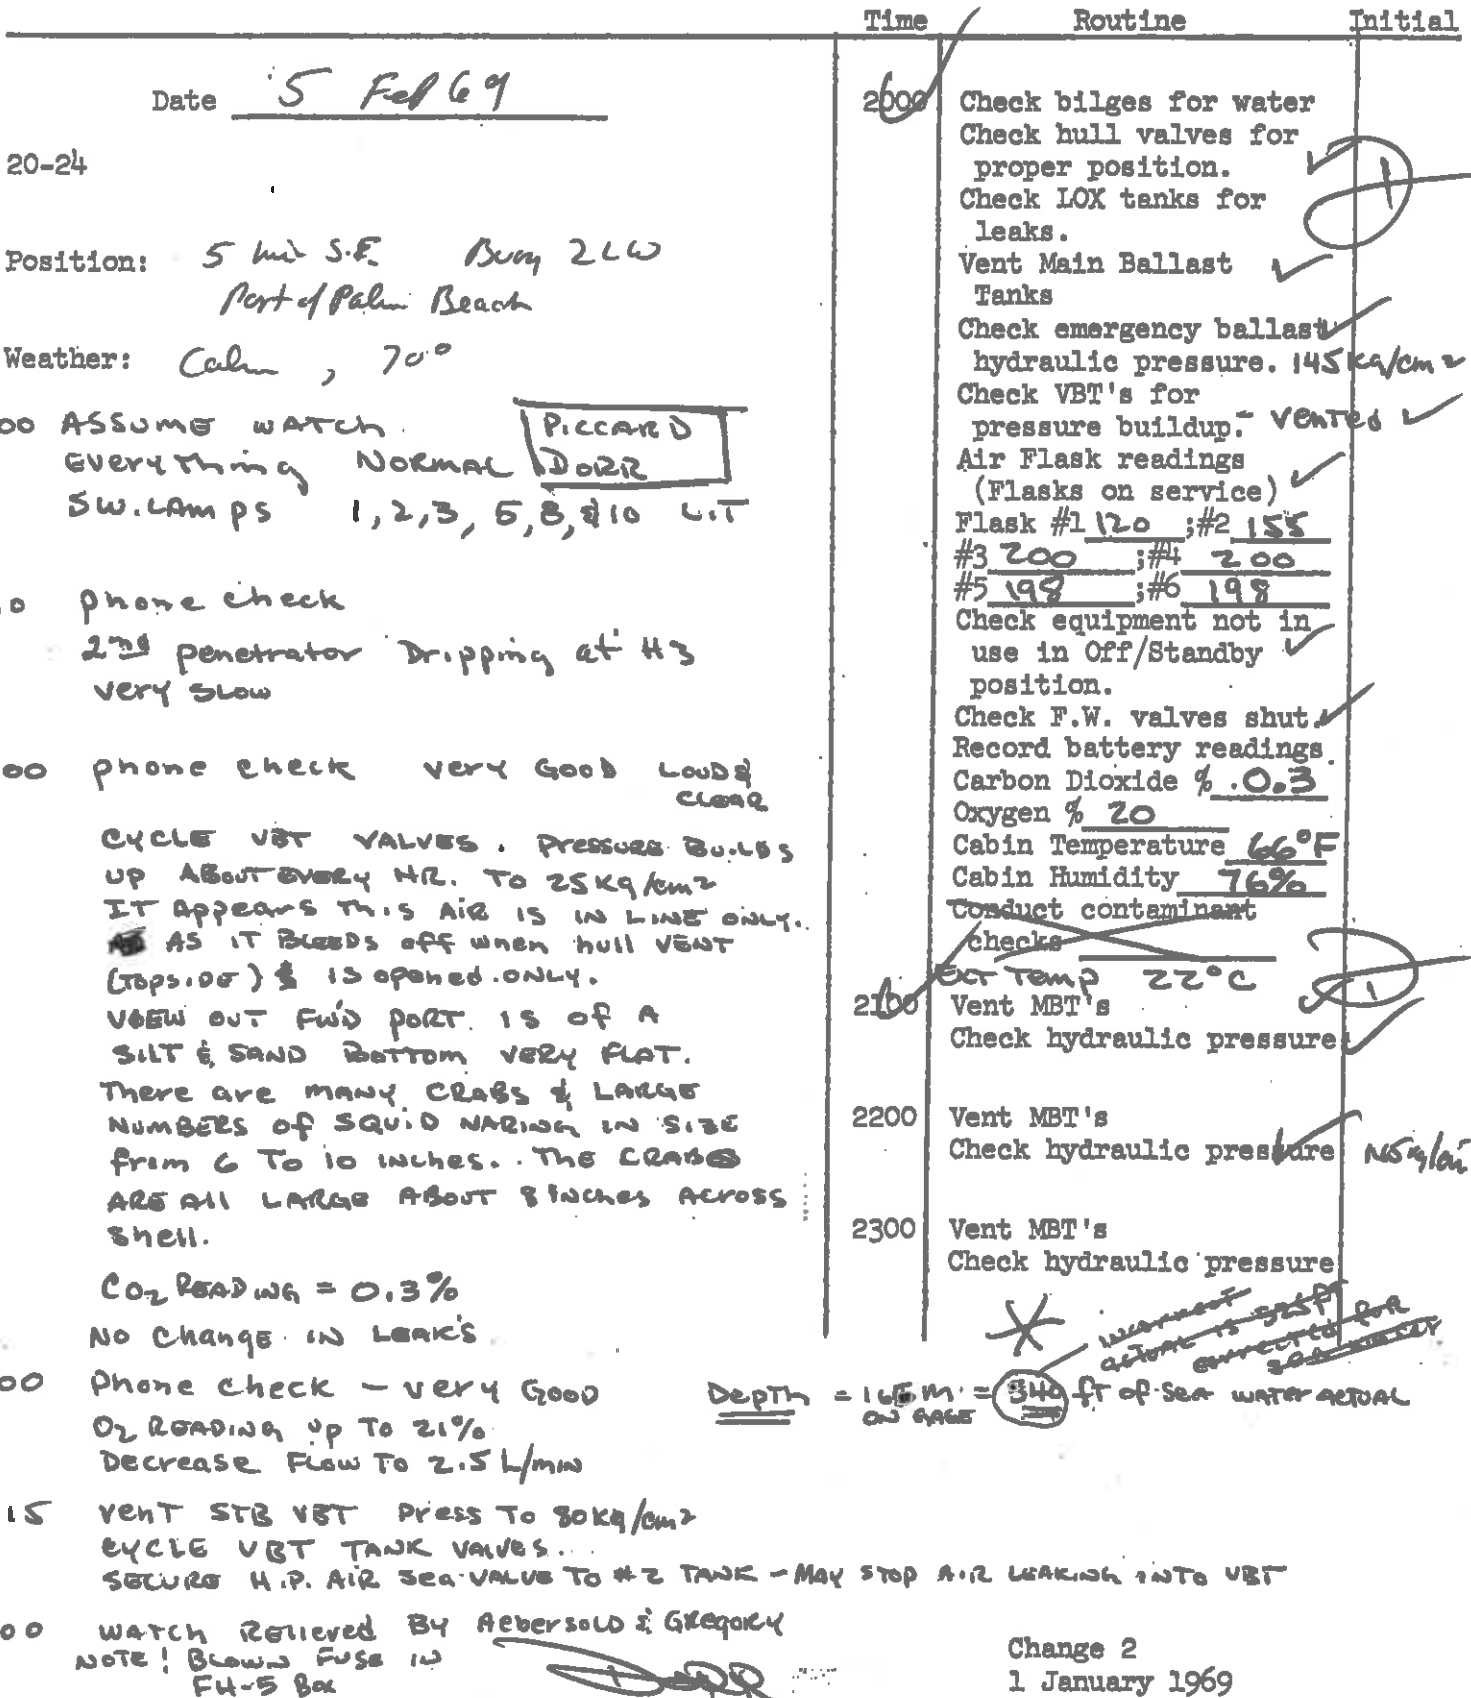 Time Routine Initial
Date 5 Feb 69
20-24
Position: 5 mi S.E. Buoy 2LW
Port of Palm Beach
Weather: Calm, 70°
00 ASSUME WATCH. PICCARD
EVERYTHING NORMAL DORR
SW. LAMPS 1, 2, 3, 5, 8, & 10 LIT
0 phone check
2nd penetrator Dripping at #3
very slow
00 phone check very GOOD LOUD &
CLEAR
CYCLE VBT VALVES. Pressure BUILDS
UP ABOUT EVERY HR. TO 25 Kg/cm2
IT APPEARS THIS AIR IS IN LINE ONLY.
AS IT BLEEDS off when hull VENT
(TOPSIDE) & IS opened ONLY.
VIEW OUT FWD PORT IS OF A
SILT & SAND BOTTOM VERY FLAT.
There are MANY CRABS & LARGE
NUMBERS of SQUID VARING IN SIZE
from 6 To 10 INCHES. THE CRABS
ARE All LARGE ABOUT 8 INCHES ACROSS
Shell.
CO2 READING = 0.3%
NO Change IN LEAK'S
00 Phone check - very GOOD
O2 READING up To 21%
Decrease FLOW To 2.5 L/min
15 VENT STB VBT Press To 80 Kg/cm2
CYCLE VBT TANK VALVES.
SECURE H.P. AIR Sea VALVE TO #2 TANK - MAY STOP AIR LEAKING INTO VBT
00 WATCH Relieved By Aebersold & Gregory
NOTE! BLOWN FUSE IN
FU-5 Box
DORR
2000 Check bilges for water
Check hull valves for
proper position.
Check LOX tanks for
leaks.
Vent Main Ballast
Tanks
Check emergency ballast
hydraulic pressure. 145 kg/cm2
Check VBT's for
pressure buildup. - vented
Air Flask readings
(Flasks on service)
Flask #1 120 ;#2 155
#3 200 ;#4 200
#5 198 ;#6 198
Check equipment not in
use in Off/Standby
position.
Check F.W. valves shut.
Record battery readings
Carbon Dioxide % .0.3
Oxygen % 20
Cabin Temperature 66°F
Cabin Humidity 76%
Conduct contaminant
checks
Ext Temp 22°C
2100 Vent MBT's
Check hydraulic pressure
2200 Vent MBT's
Check hydraulic pressure
2300 Vent MBT's
Check hydraulic pressure
incorrect
actual is 525 ft
corrected for
sea water
Depth = m = 540 ft of sea water actual
ON GAGE
Change 2
1 January 1969